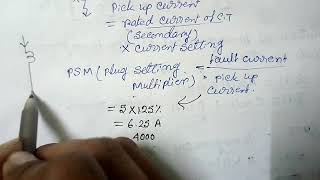 Pick up current
= rated current of C.T
(secondary)
× current setting
PSM (plug setting = fault current
multiplier) pick up
current.
= 5 × 125%
= 6.25 A
4000